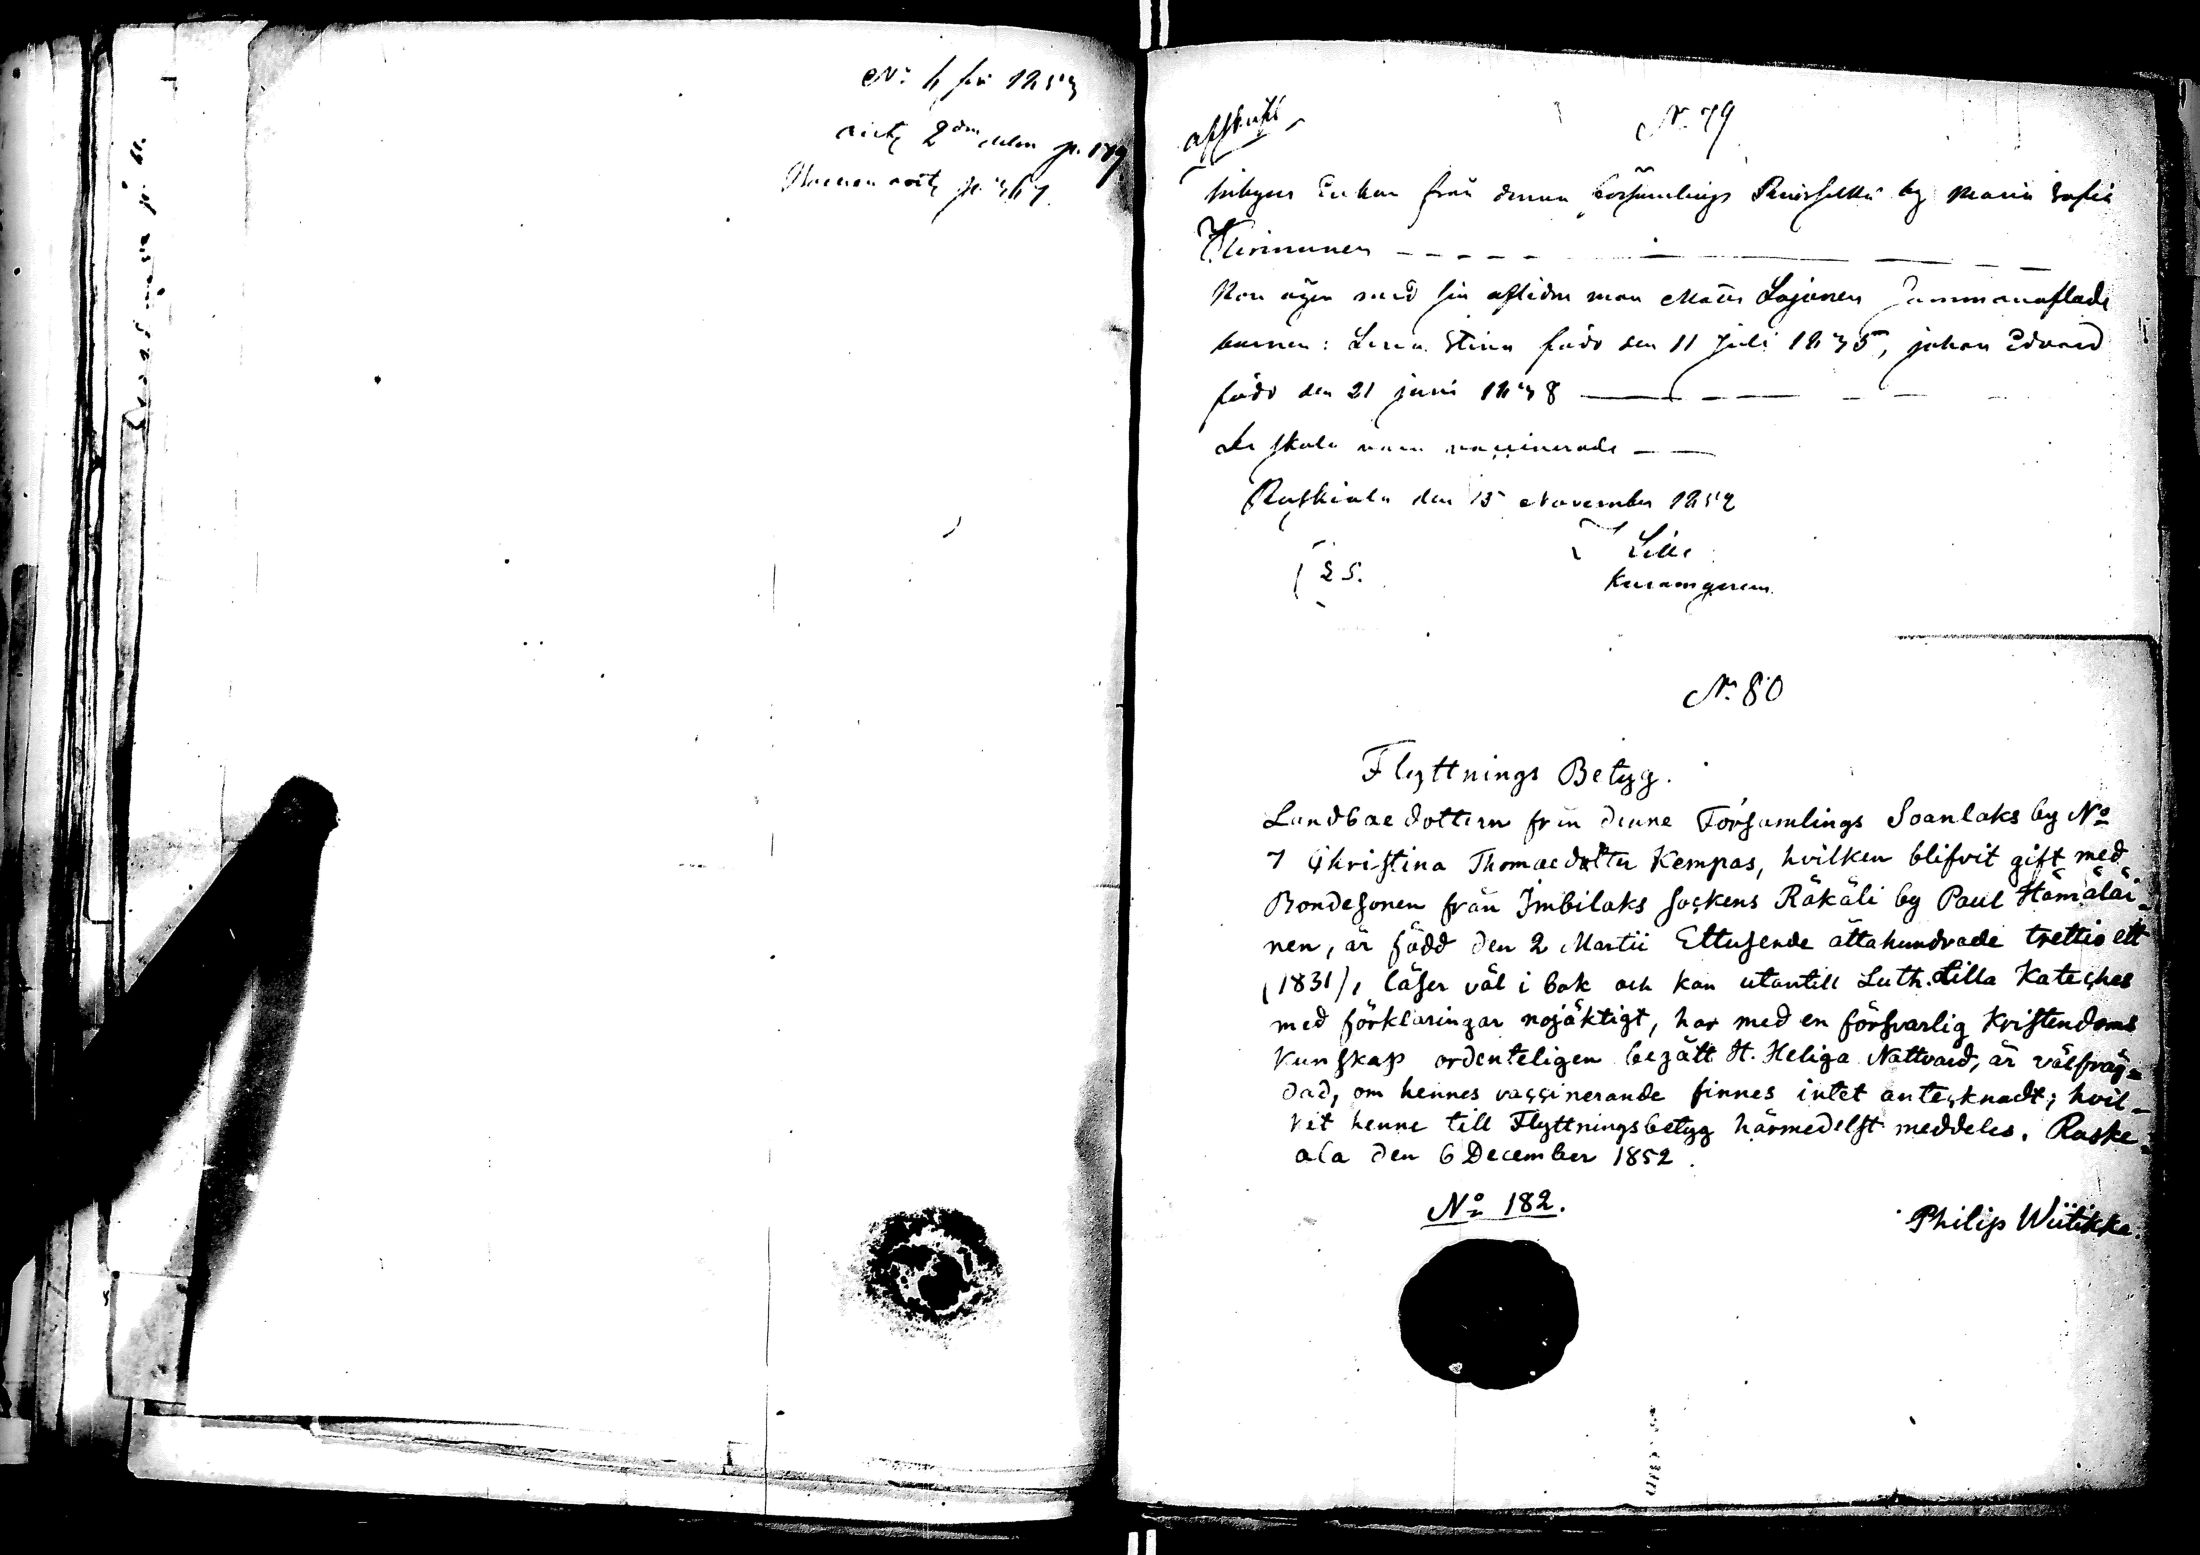 No 4 för 1853
2dra delen p. 179
p. 367
Afskrift
No 79
Enkan från denna Församlings by Maria Sofia
Hirmunen
Hon äger med sin aflidne man Matts Lojanen sammanaflade
barnen: Lena Stina född den 11 Juli 1835, Johan Edvard
född den 21 Juni 1838
De skola vara vaccinerade
Ruskiala den 15 November 1852
L S.
No 80
Flyttnings Betyg.
Landboedottern från denne Församlings Soanlaks by No
7 Christina Thomaedotter Kempas, hvilken blifvit gift med
Bondesonen från Imbilaks Sockens Räkäli by Paul Hämäläi-
nen, är född den 2 Martii Ettusende åttahundrade trettio ett
(1831), läser väl i bok och kan utantill Luth. Lilla Kateches
med förklaringar nojäktigt, har med en försvarlig Kristendoms
Kunskap ordenteligen begått H. Heliga Nattvard, är välfräg=
dad, om hennes vaccinerande finnes intet antecknadt; hvil-
ket henne till Flyttningsbetyg härmedelst meddeles. Ruske=
ala den 6 December 1852.
No 182.
Philip Wiitikka.